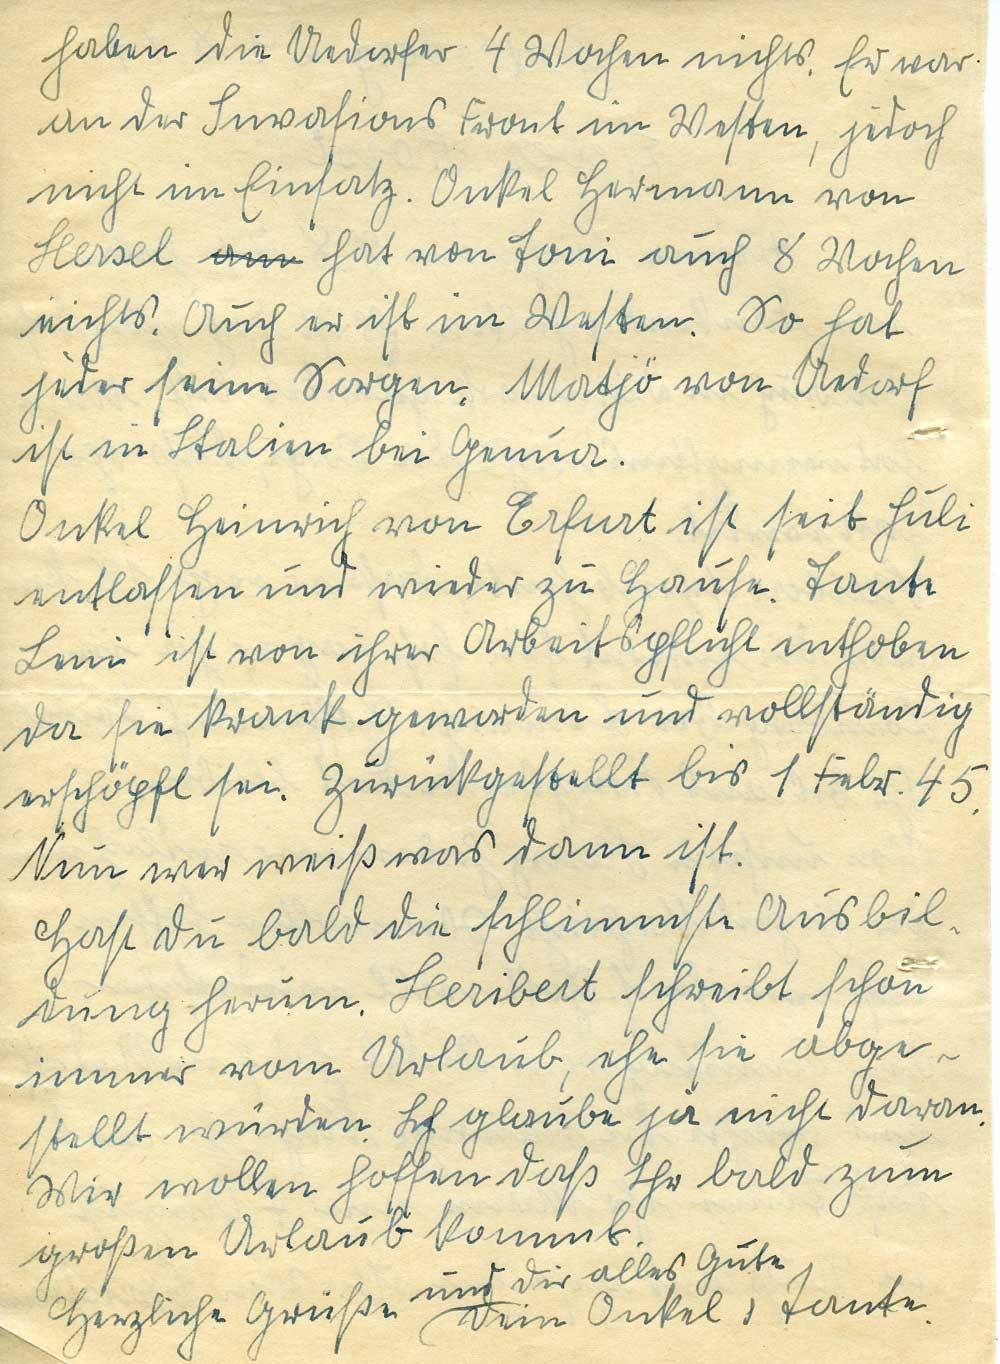 haben die Uedorfer 4 Wochen nichts. Er war
an der Invasions Front im Westen, jedoch
nicht im Einsatz. Onkel Hermann von
Hersel am hat von Toni auch 8 Wochen
nichts. Auch er ist im Westen. So hat
jeder seine Sorgen. Matjö von Uedorf
ist in Italien bei Genua.
Onkel Heinrich von Erfurt ist seit Juli
entlassen und wieder zu Hause. Tante
Leni ist von ihrer Arbeitspflicht enthoben
da sie krank geworden und vollständig
erschöpft sei. Zurückgestellt bis 1 Febr. 45.
Nun wer weiß was dann ist.
Hast du bald die schlimmste Ausbil-
dung herum. Heribert schreibt schon
immer vom Urlaub, ehe sie abge-
stellt würden. Ich glaube ja nicht daran.
Wir wollen hoffen daß Ihr bald zum
großen Urlaub kommt.
Herzliche Grüße und dir alles Gute
Dein Onkel & Tante.